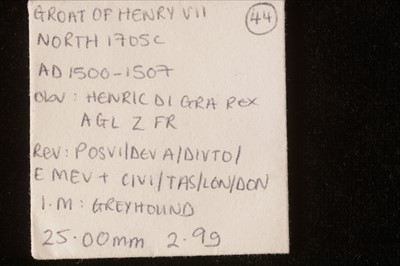 GROAT OF HENRY VII
44
NORTH 1705C
AD 1500-1507
Obv: HENRIC DI GRA REX
AGL Z FR
REV: POSVI/DEV A/DIVTO/
E MEV + CIVI/TAS/LON/DON
I.M: GREYHOUND
25.00mm 2.99